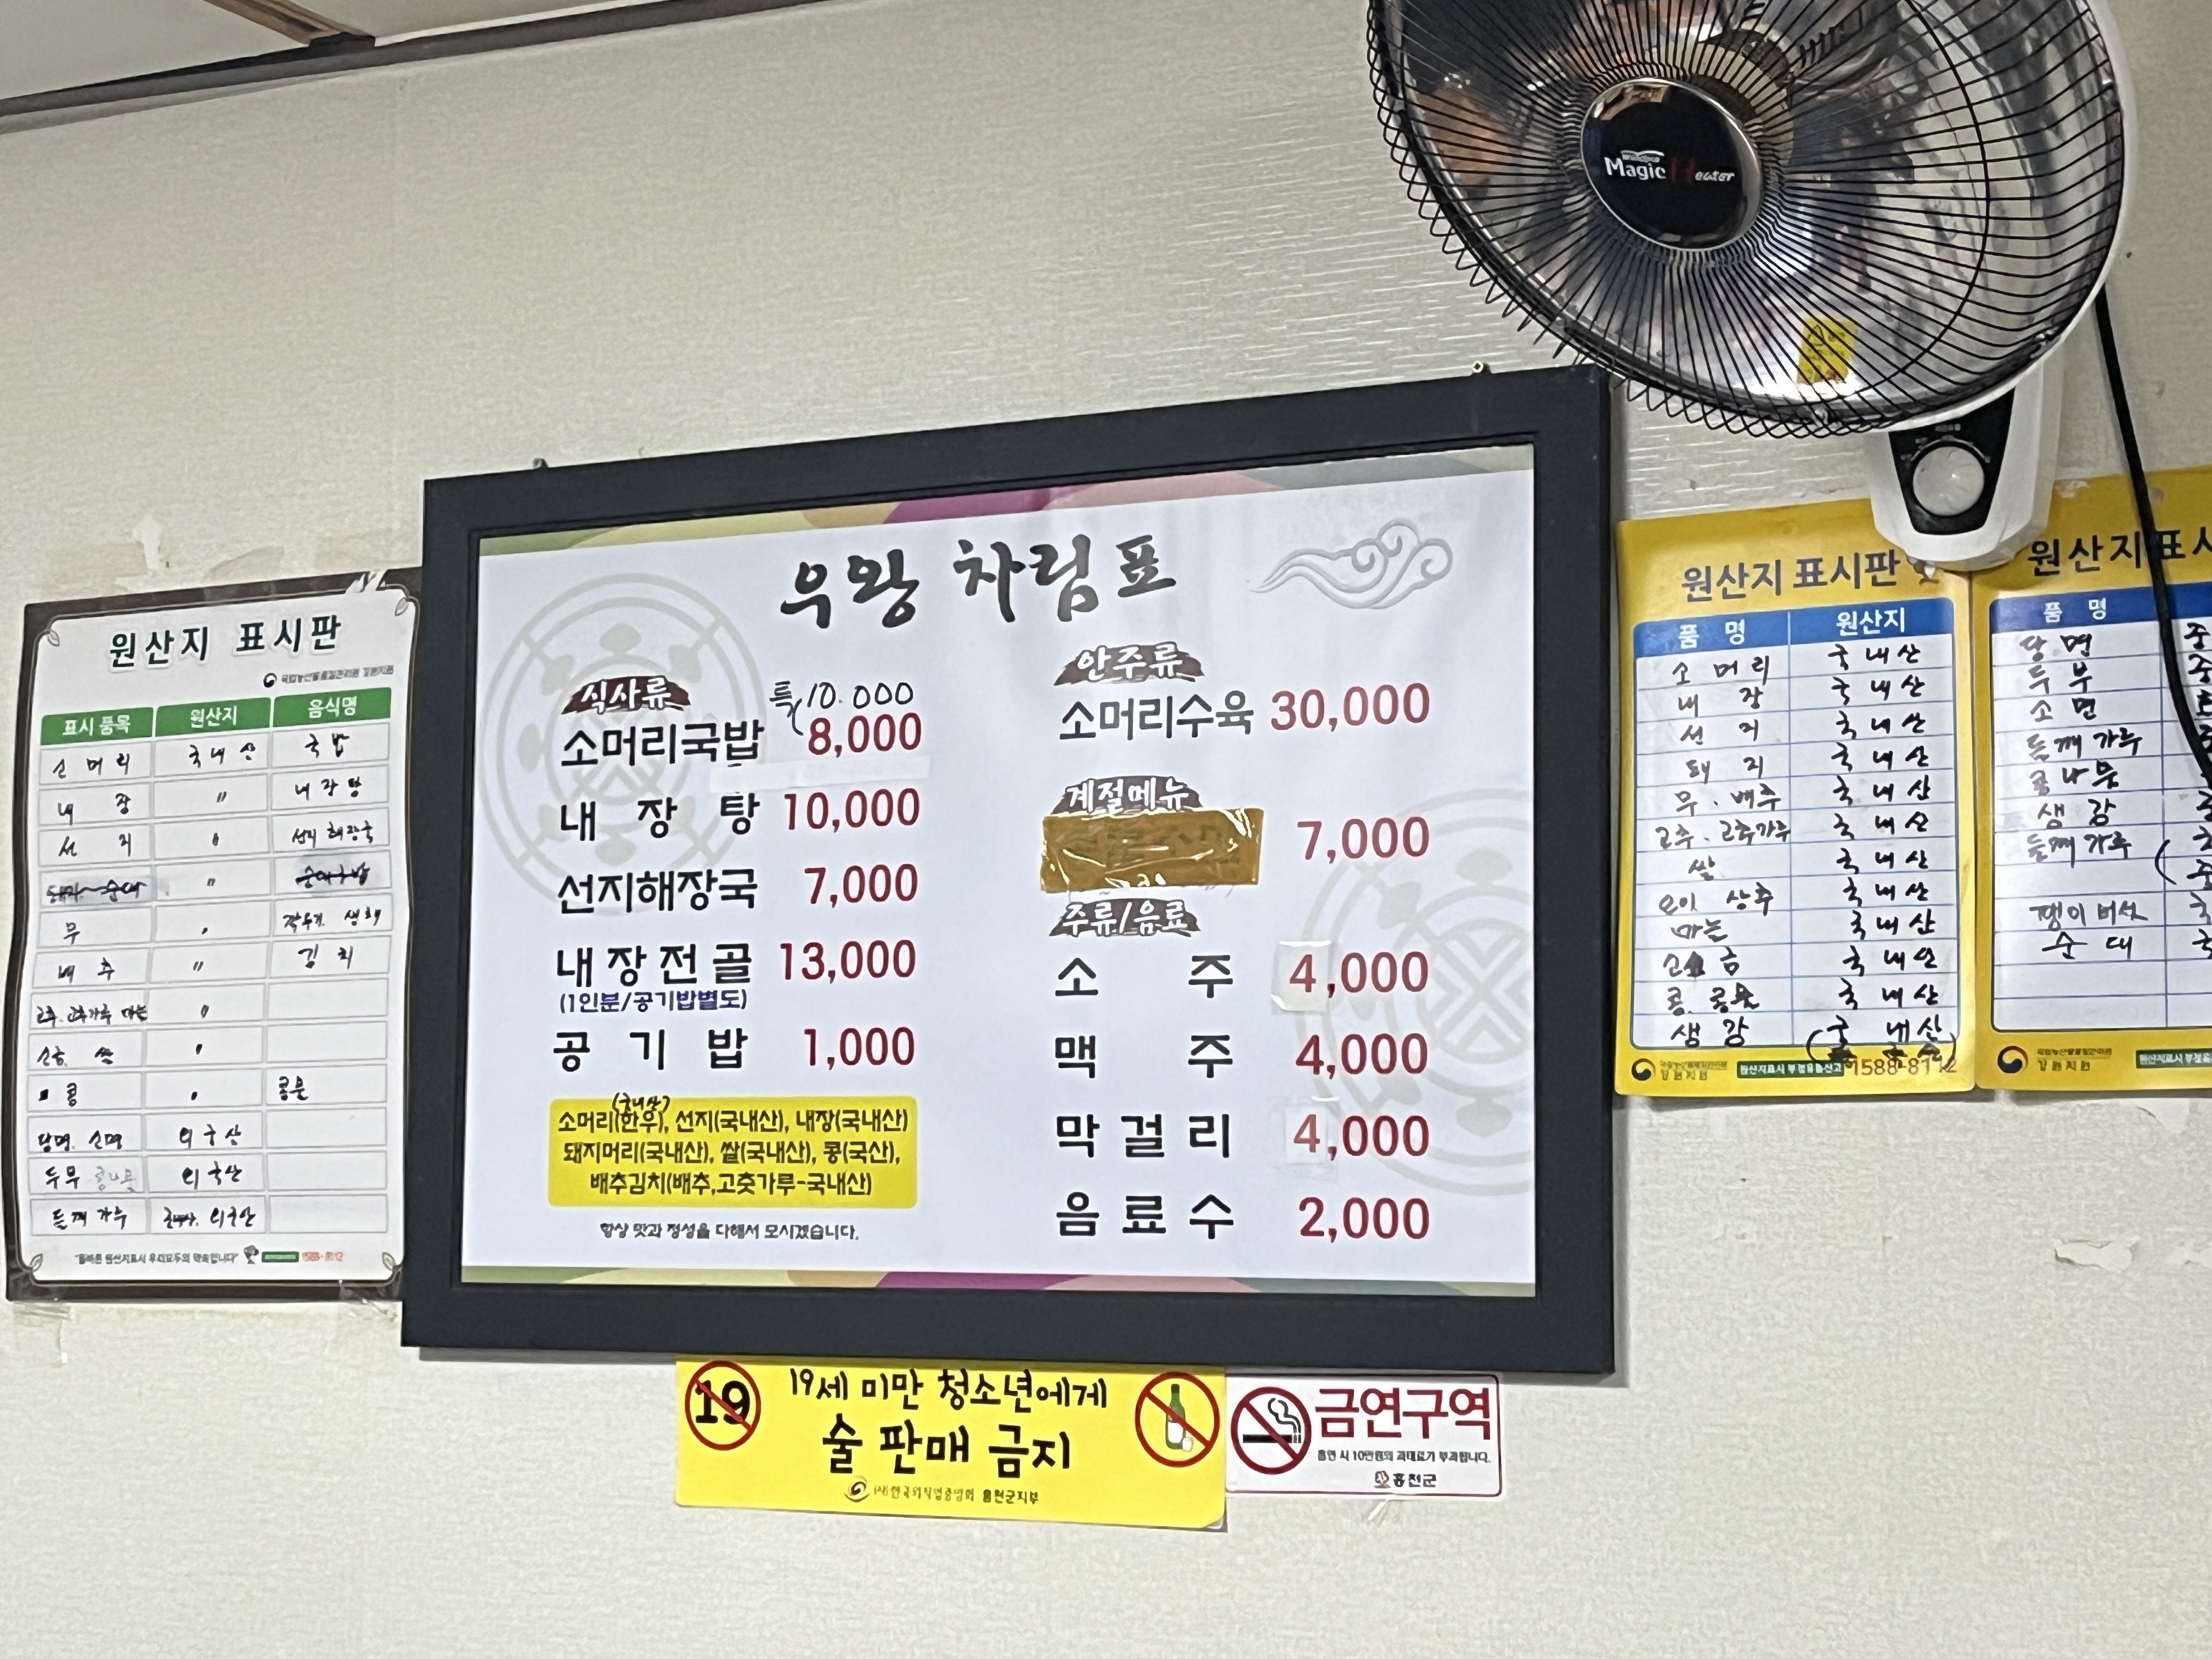 원산지 표시판
표시 품목 원산지 음식명
소 머 리 국내산 국밥
내 장 〃 내장탕
선 지 〃 선지해장국
무 〃 깍두기. 생채
배 추 〃 김 치
고추. 고추가루 마늘 〃
소금. 쌀 〃
콩 〃 콩물
당면. 소면 외국산
두부 콩나물 외국산
들깨 가루 외국산
1588-8112
우왕 차림표
식사류
특 10.000
소머리국밥 8,000
내 장 탕 10,000
선지해장국 7,000
내장전골 13,000
(1인분/공기밥별도)
공 기 밥 1,000
(국내산)
소머리(한우), 선지(국내산), 내장(국내산)
돼지머리(국내산), 쌀(국내산), 콩(국산),
배추김치(배추,고춧가루-국내산)
항상 맛과 정성을 다해서 모시겠습니다.
안주류
소머리수육 30,000
계절메뉴
7,000
주류/음료
소 주 4,000
맥 주 4,000
막 걸 리 4,000
음 료 수 2,000
19
19세 미만 청소년에게
술 판매 금지
(사)한국외식업중앙회 홍천군지부
금연구역
흡연 시 10만원의 과태료가 부과됩니다.
홍천군
Magic Heater
원산지 표시판
품 명 원산지
소 머리 국내산
내 장 국내산
선 지 국내산
돼 지 국내산
무 . 배추 국내산
고추 . 고추가루 국내산
쌀 국내산
오이 상추 국내산
마늘 국내산
소금 국내산
콩. 콩물 국내산
생 강 국내산
강원지원 원산지표시 부정유통신고 1588-8112
원산지 표시
품 명
당 면
두 부
소 면
들깨 가루
콩나물
생 강
들깨 가루
팽이버섯
순 대
강원지원